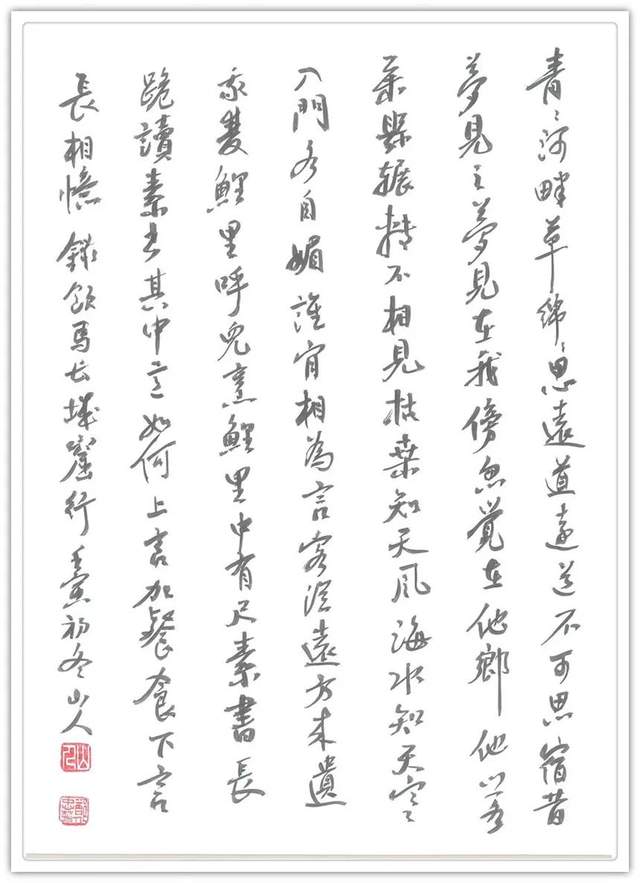 青〻河畔草綿〻思遠道遠道不可思宿昔
夢見之夢見在我傍忽覺在他鄉他鄉各
異縣輾轉不相見枯桑知天風海水知天寒
入門各自媚誰肯相為言客從遠方來遺
我雙鯉魚呼兒烹鯉魚中有尺素書長
跪讀素書其中意如何上言加餐食下言
長相憶 錄飲馬長城窟行 壬寅初冬山人